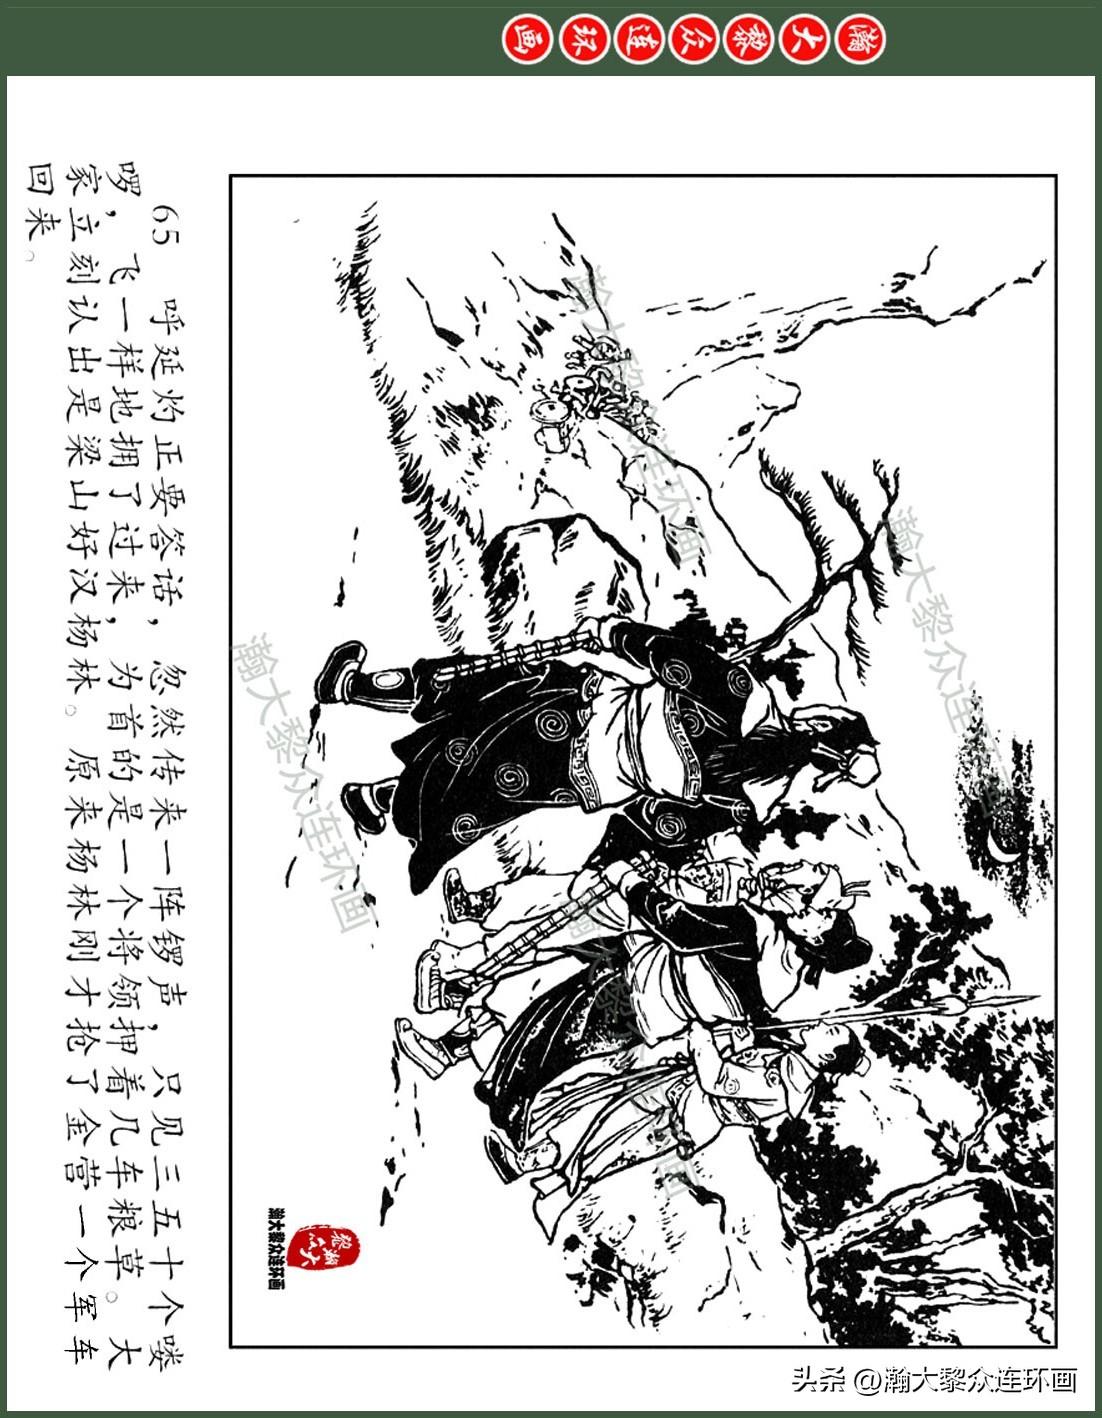 瀚大黎众连环画
65 呼延灼正要答话，忽然传来一阵锣声，只见三五十个喽
啰，飞一样地拥了过来，为首的是一个将领押着几车粮草。大
家立刻认出是梁山好汉杨林。原来杨林刚才抢了金营一个军车
回来。
瀚大黎众连环画
瀚大黎众连环画
瀚大黎众连环画
瀚大黎众连环画
瀚大黎众
瀚大黎众连环画
头条 @瀚大黎众连环画